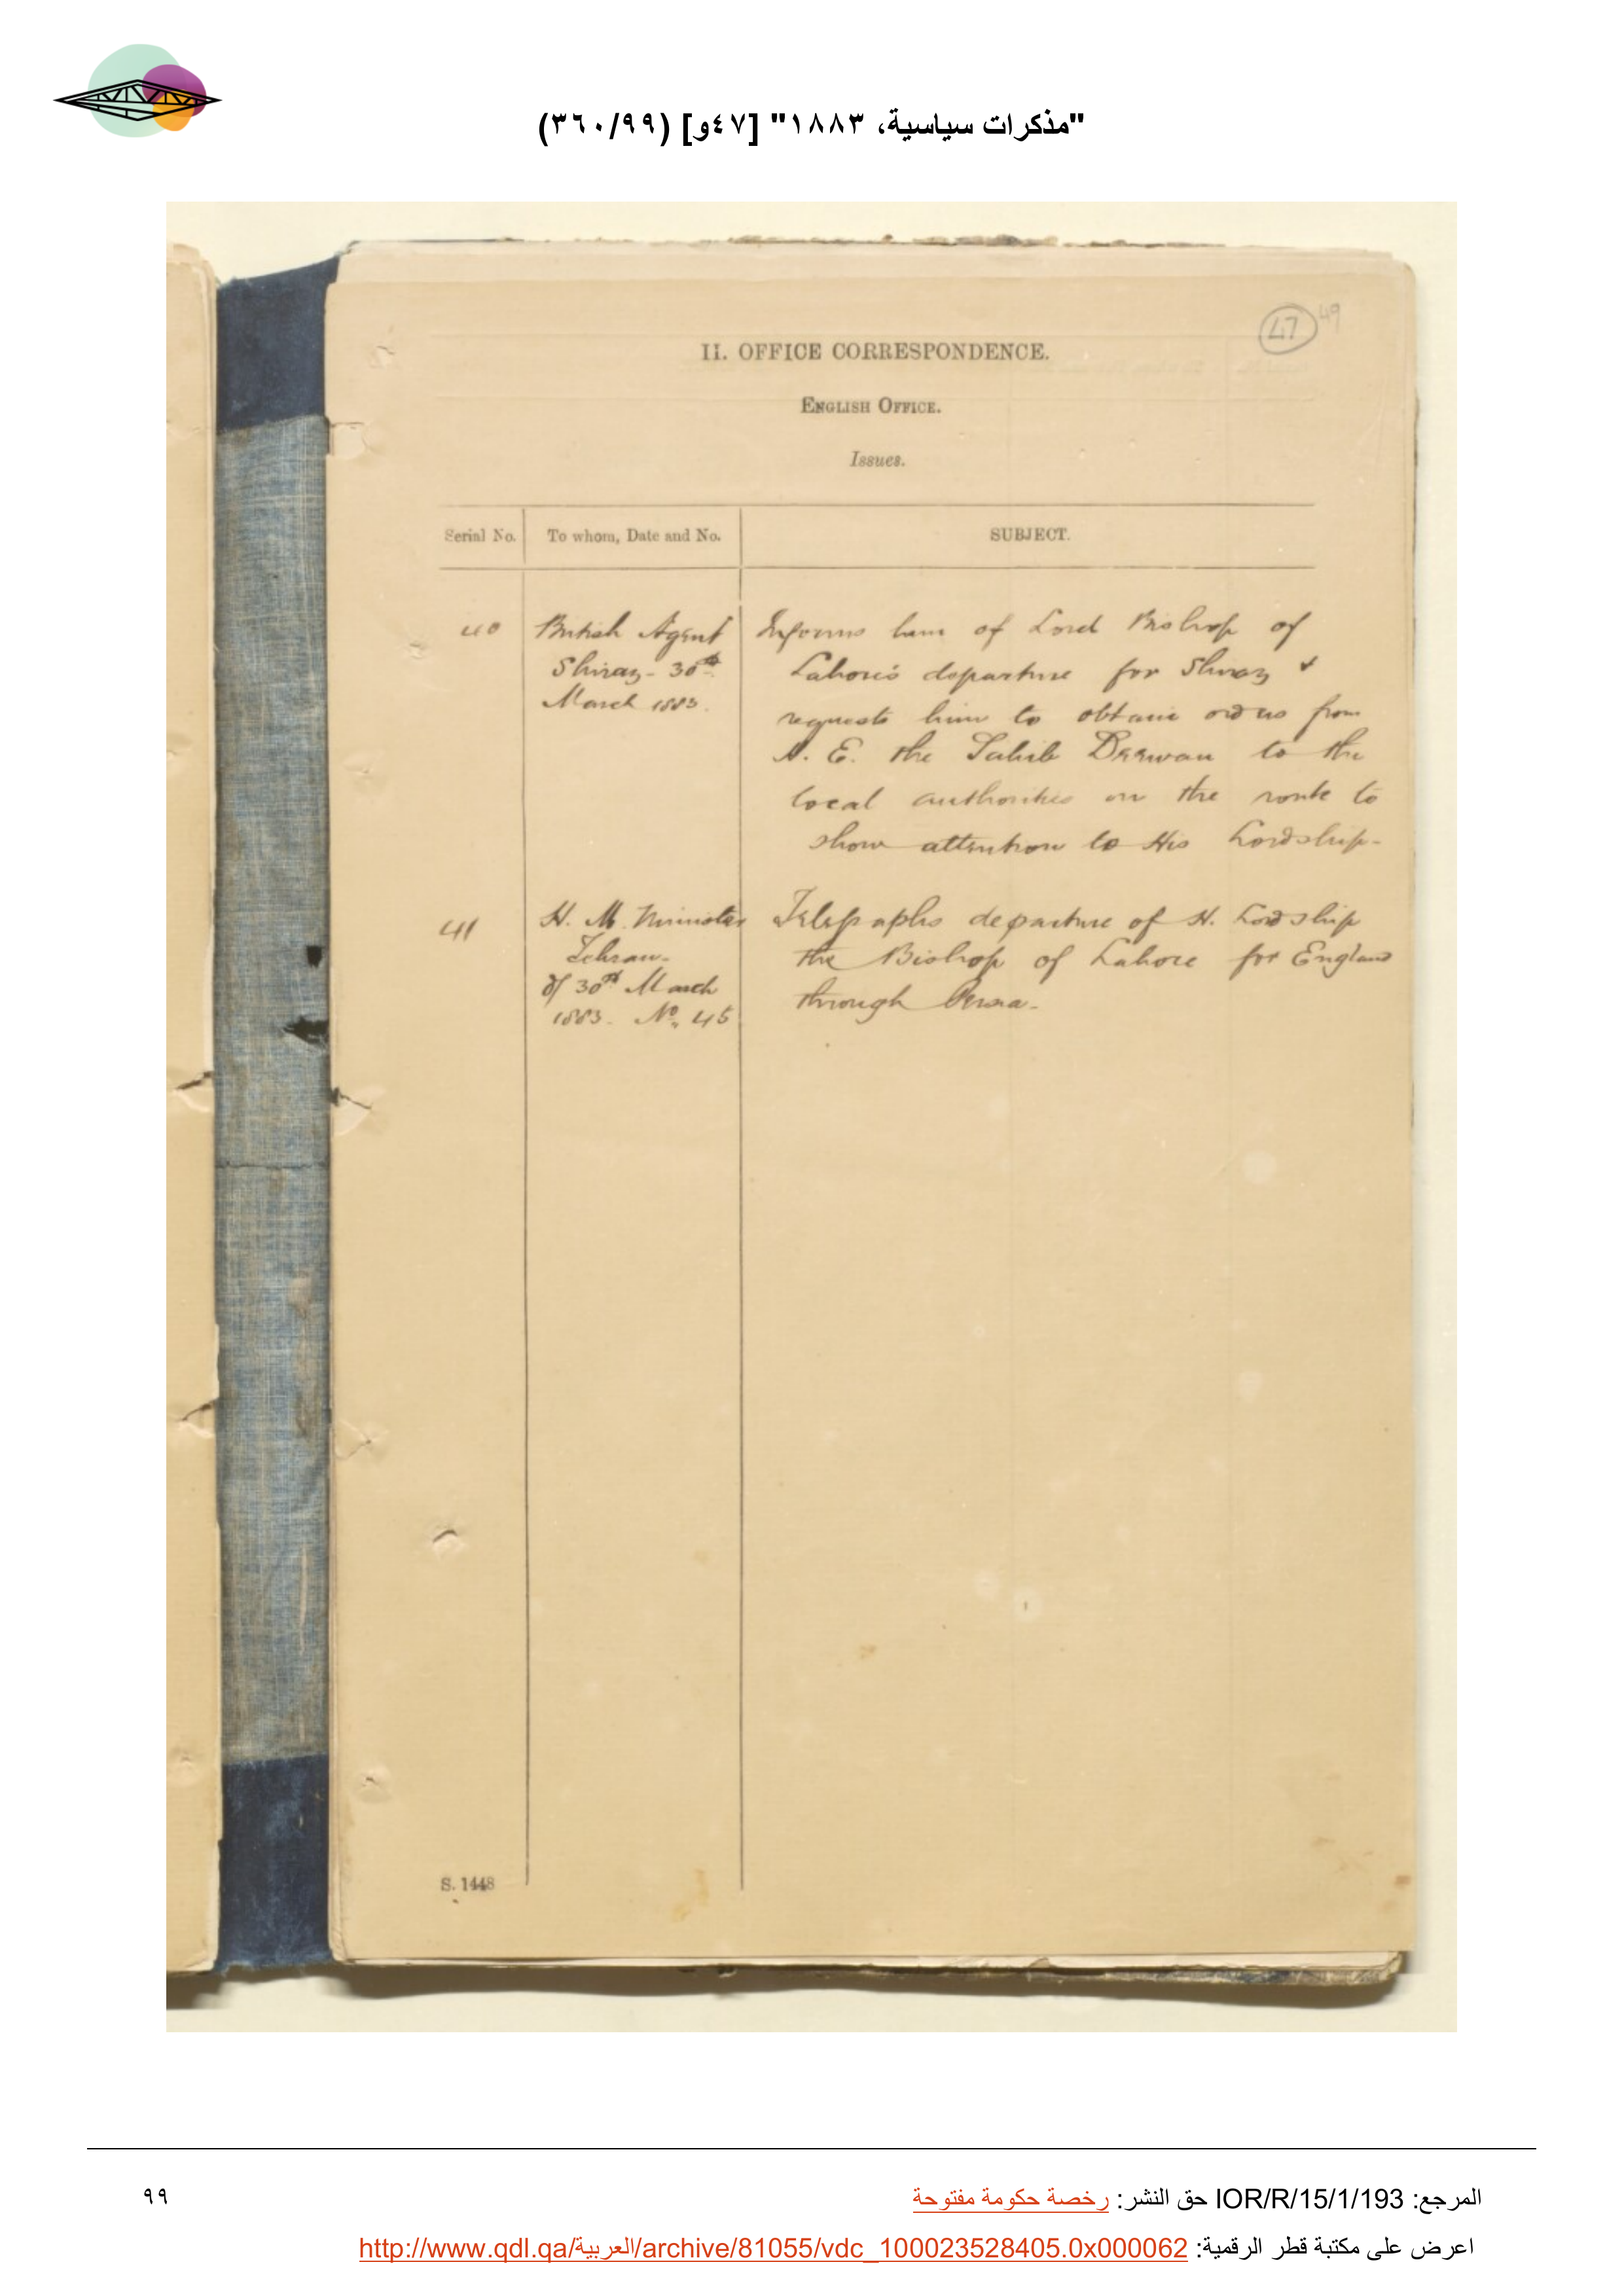 "مذكرات سياسية، ١٨٨٣" [٤٧و] (٣٦٠/٩٩)
47 49
II. OFFICE CORRESPONDENCE.
ENGLISH OFFICE.
Issues.
Serial No. To whom, Date and No. SUBJECT.
40 British Agent Shiraz - 30th March 1883.
Informs him of Lord Bishop of
Lahore's departure for Shiraz &
requests him to obtain orders from
H. E. the Sahib Deewan to the
local authorities on the route to
show attention to His Lordship-
41 H. M. Minister
Tehran-
d/ 30th March
1883. No. 45
Telegraphs departure of H. Lordship
the Bishop of Lahore for England
through Persia-
S. 1448
المرجع: IOR/R/15/1/193 حق النشر: رخصة حكومة مفتوحة
٩٩
اعرض على مكتبة قطر الرقمية: http://www.qdl.qa/العربية/archive/81055/vdc_100023528405.0x000062